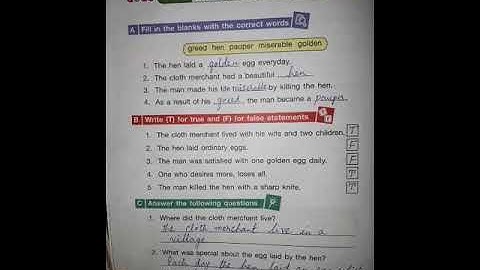 A Fill in the blanks with the correct words
greed hen pauper miserable golden
1. The hen laid a golden egg everyday.
2. The cloth merchant had a beautiful hen
3. The man made his life miserable by killing the hen.
4. As a result of his greed, the man became a pauper
B Write (T) for true and (F) for false statements
1. The cloth merchant lived with his wife and two children. T
2. The hen laid ordinary eggs. F
3. The man was satisfied with one golden egg daily. F
4. One who desires more, loses all. T
5. The man killed the hen with a sharp knife. T
C Answer the following questions
1. Where did the cloth merchant live?
The cloth merchant live in a
village
2. What was special about the egg laid by the hen?
Each day the hen laid